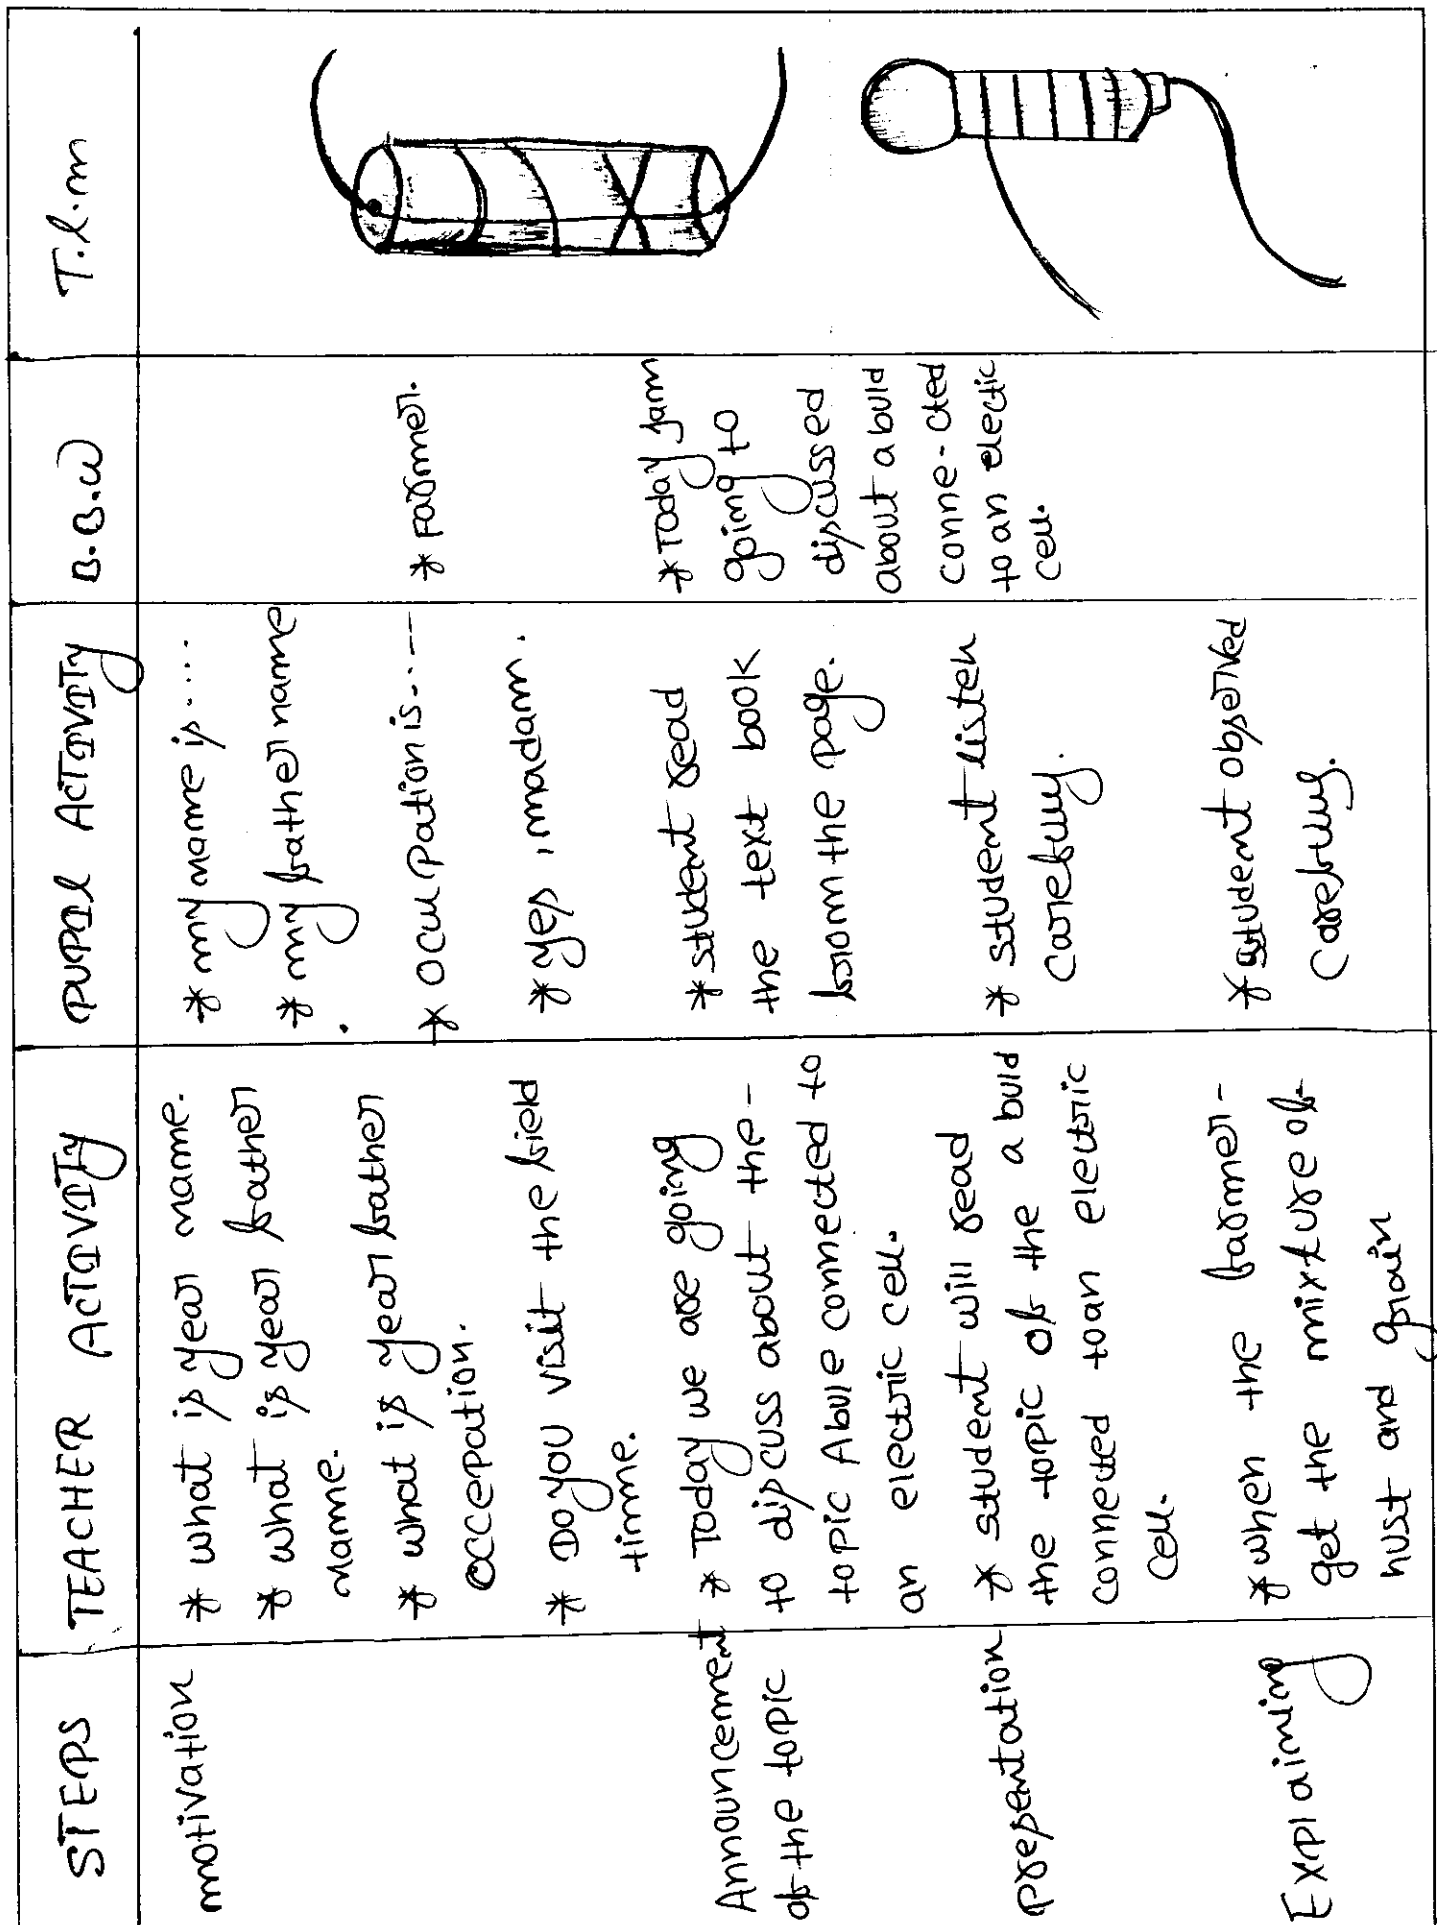 STEPS
TEACHER ACTIVITY
PUPIL ACTIVITY
B.B.W
T.L.M
motivation
* what is year name.
* what is year father
name.
* what is year father
occepation.
* Do you visit the field
time.
* my name is.....
* my father name
* Ocu pation is..---
* yes, madam.
* Farmer.
Announcement
of the topic
* Today we are going
to discuss about the-
topic Abule connected to
an electric cell.
* student read
the text book
from the page.
* Today I am
going to
discussed
about a buld
conne-cted
to an electic
cell.
presentation
* student will read
the topic of the a buld
conneted to an electric
cell.
* student listen
carefully.
Explaining
* when the farmer-
get the mixture of
hust and grain
* student observed
carefully.